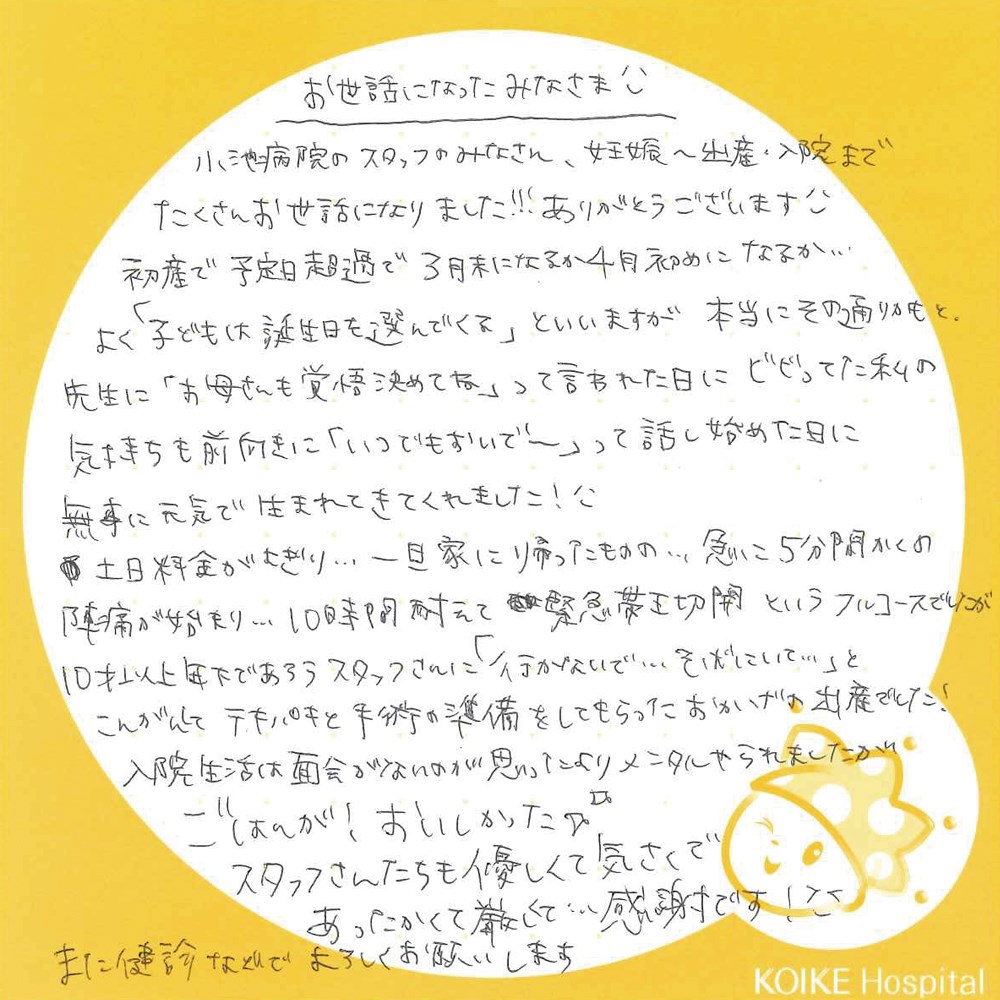 お世話になったみなさま
小池病院のスタッフのみなさん、妊娠〜出産・入院まで
たくさんお世話になりました!!! ありがとうございます
初産で予定日超過で3月末になるか4月初めになるか…
よく「子どもは誕生日を選んでくる」といいますが 本当にその通りかもと。
先生に「お母さんも覚悟決めてな」って言われた日に ビビってた私の
気持ちも前向きに「いつでもおいで〜」って話し始めた日に
無事に元気で生まれてきてくれました!
土日料金がよぎり… 一旦家に帰ったものの… 急に5分間かくの
陣痛が始まり… 10時間耐えて 緊急帝王切開 というフルコースでしたが
10才以上年下であろうスタッフさんに「行かないで… そばにいて…」と
こんがんして テキパキと手術の準備をしてもらったおかげの出産でした!
入院生活は面会がないのが思ったよりメンタルやられましたが
ごはんが! おいしかった
スタッフさんたちも優しくて気さくで
あったかくて厳しくて… 感謝です!
また健診などで よろしくお願いします
KOIKE Hospital